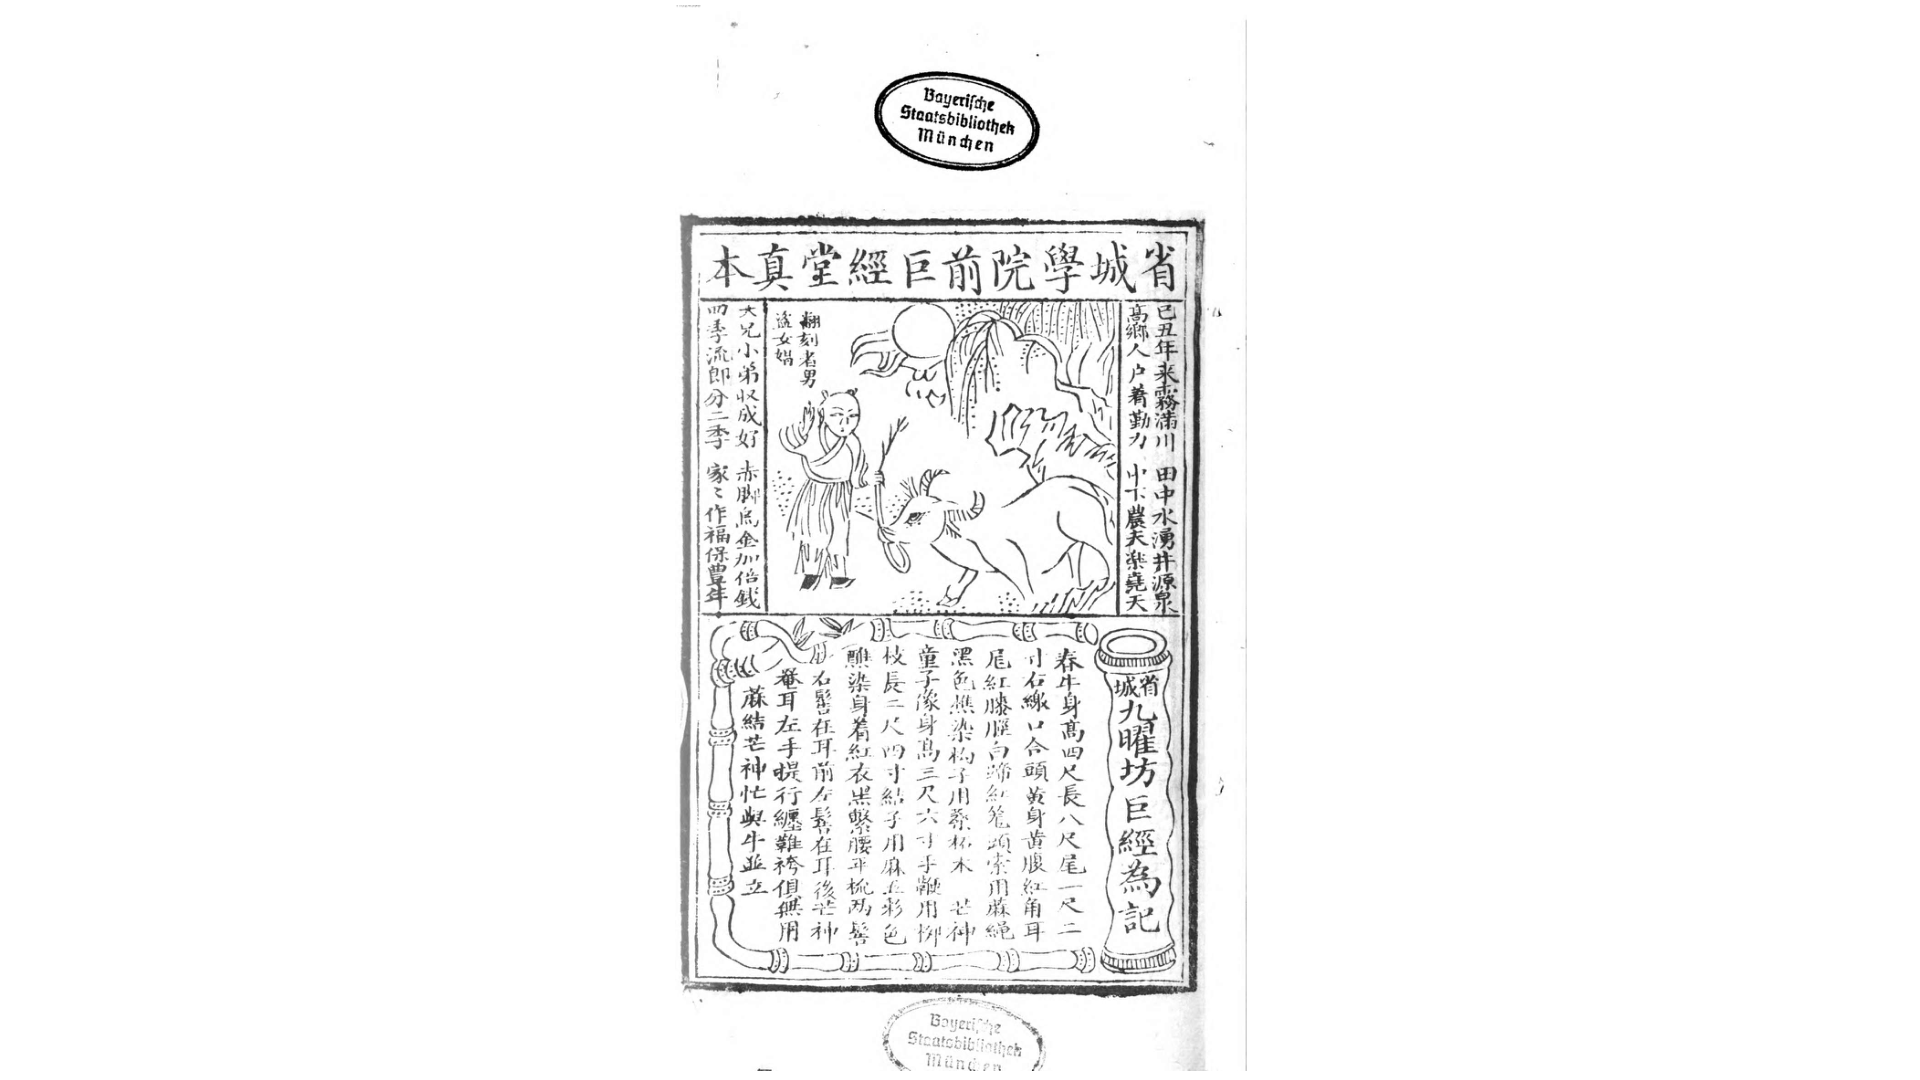 Bayerische
Staatsbibliothek
München
省城學院前巨經堂真本
己丑年来霧滿川 田中水湧井源泉
高鄉人户着勤力 中下農夫樂堯天
翻刻者男
盜女娼
大兄小弟収成好 赤脚烏金加倍錢
四季流郎分二季 家〻作福保豊年
省城九曜坊巨經為記
春牛身髙四尺長八尺尾一尺二
寸右繳口合頭黄身黄腹紅角耳
尾紅膝脛白蹄紅笼頭索用蔴繩
黑色蘸染构子用桑柘木 芒神
童子像身髙三尺六寸手鞭用柳
枝長二尺四寸結子用麻五彩色
蘸染身着紅衣黑繫腰平梳两髻
右髻在耳前左髻在耳後芒神
罨耳左手提行纏鞋袴俱無用
蔴結芒神忙與牛並立
Bayerische
Staatsbibliothek
München